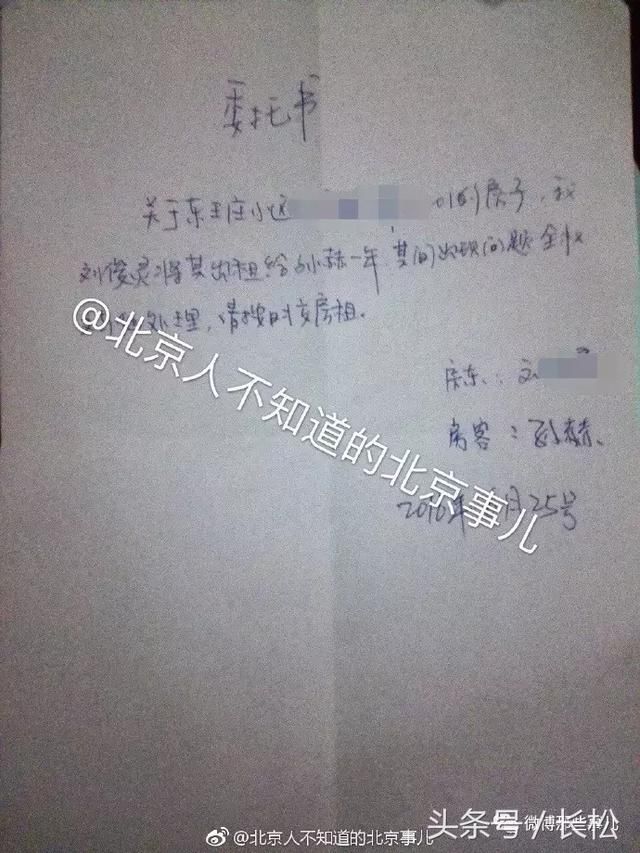 委托书
关于东王庄小区 的房子,我
刘俊灵将其出租给孙赫一年,其间出现问题全权
处理,请按时交房租。
房东:刘
房客:孙赫
2010年 月25号
@北京人不知道的北京事儿
微博那些事儿
头条号/长松
@北京人不知道的北京事儿